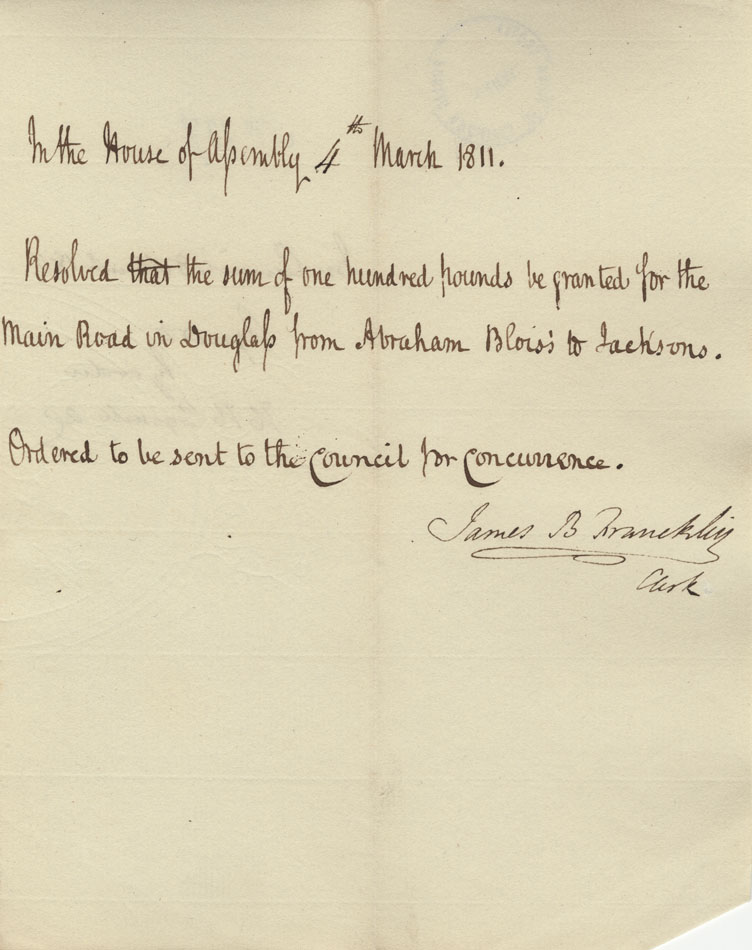 In the House of Aſsembly 4th March 1811.
Resolved ~~that~~ the sum of one hundred pounds be granted for the
Main Road in Douglaſs from Abraham Blois's to Jacksons.
Ordered to be sent to the Council for Concurrence.
James B Francklin
Clerk